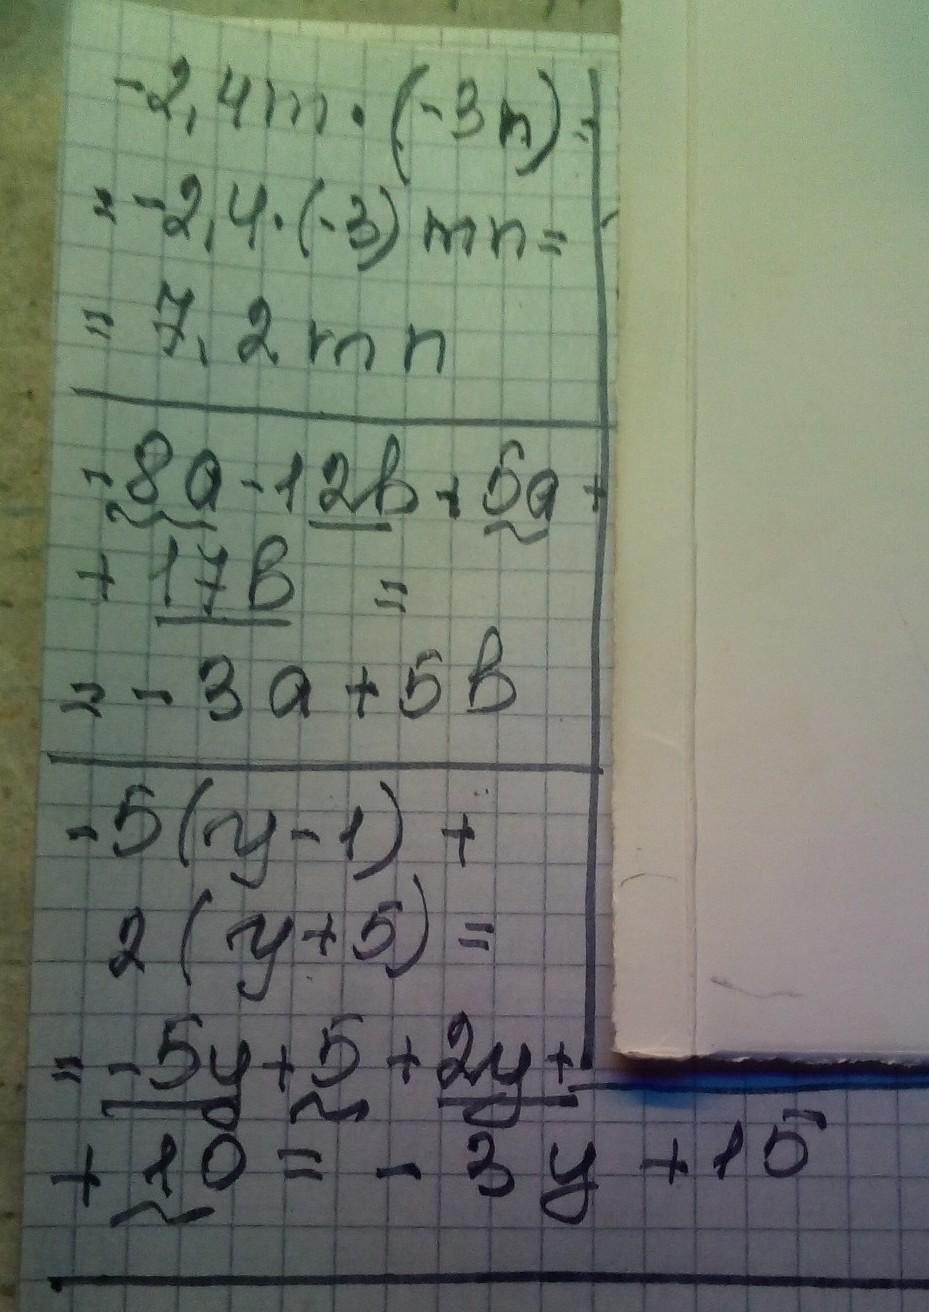 -2,4m·(-3n)=
=-2,4·(-3)mn=
= 7,2mn
-8a-12b+5a+
+17b =
=-3a+5b
-5(y-1)+
2(y+5)=
=-5y+5+2y+
+10=-3y+15